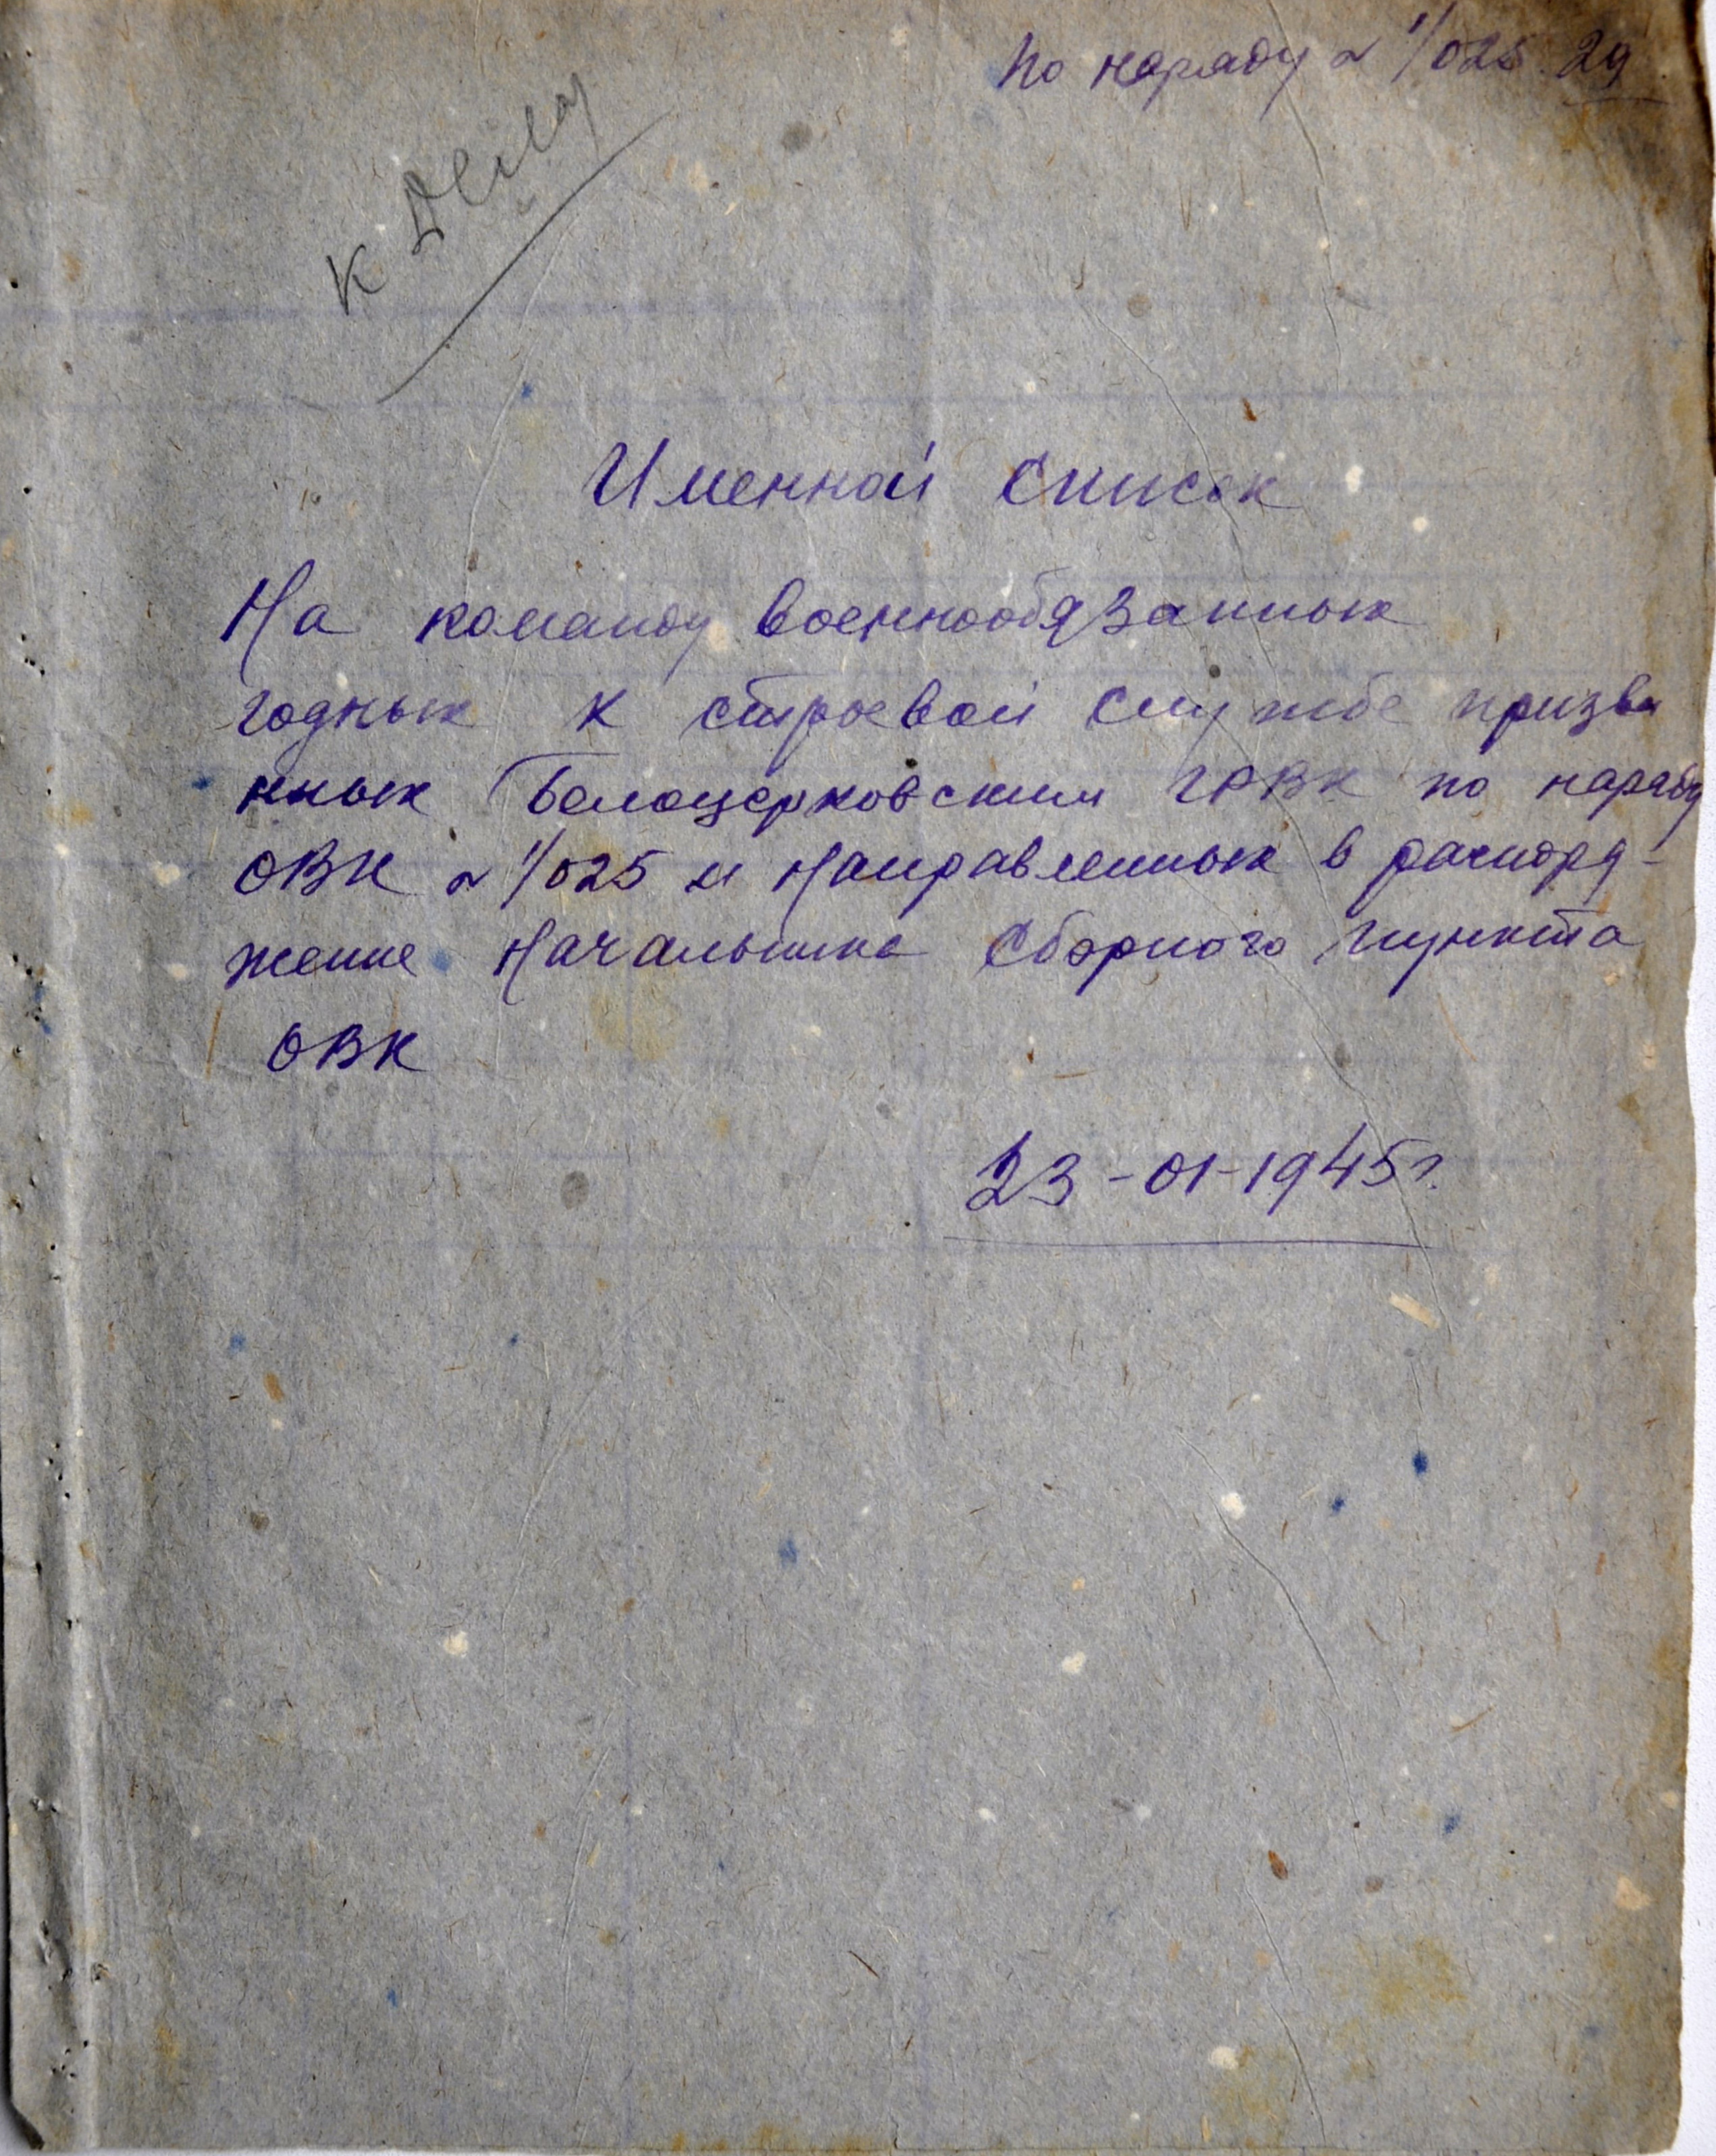 По наряду № 1/025. 29
К делу
Именной список
На команду военнообязанных
годных к строевой службе призва
нных Белоцерковским ГРВК по наряду
ОВК № 1/025 и направленных в распоря-
жение Начальника Сборного пункта
ОВК
23-01-1945 г.